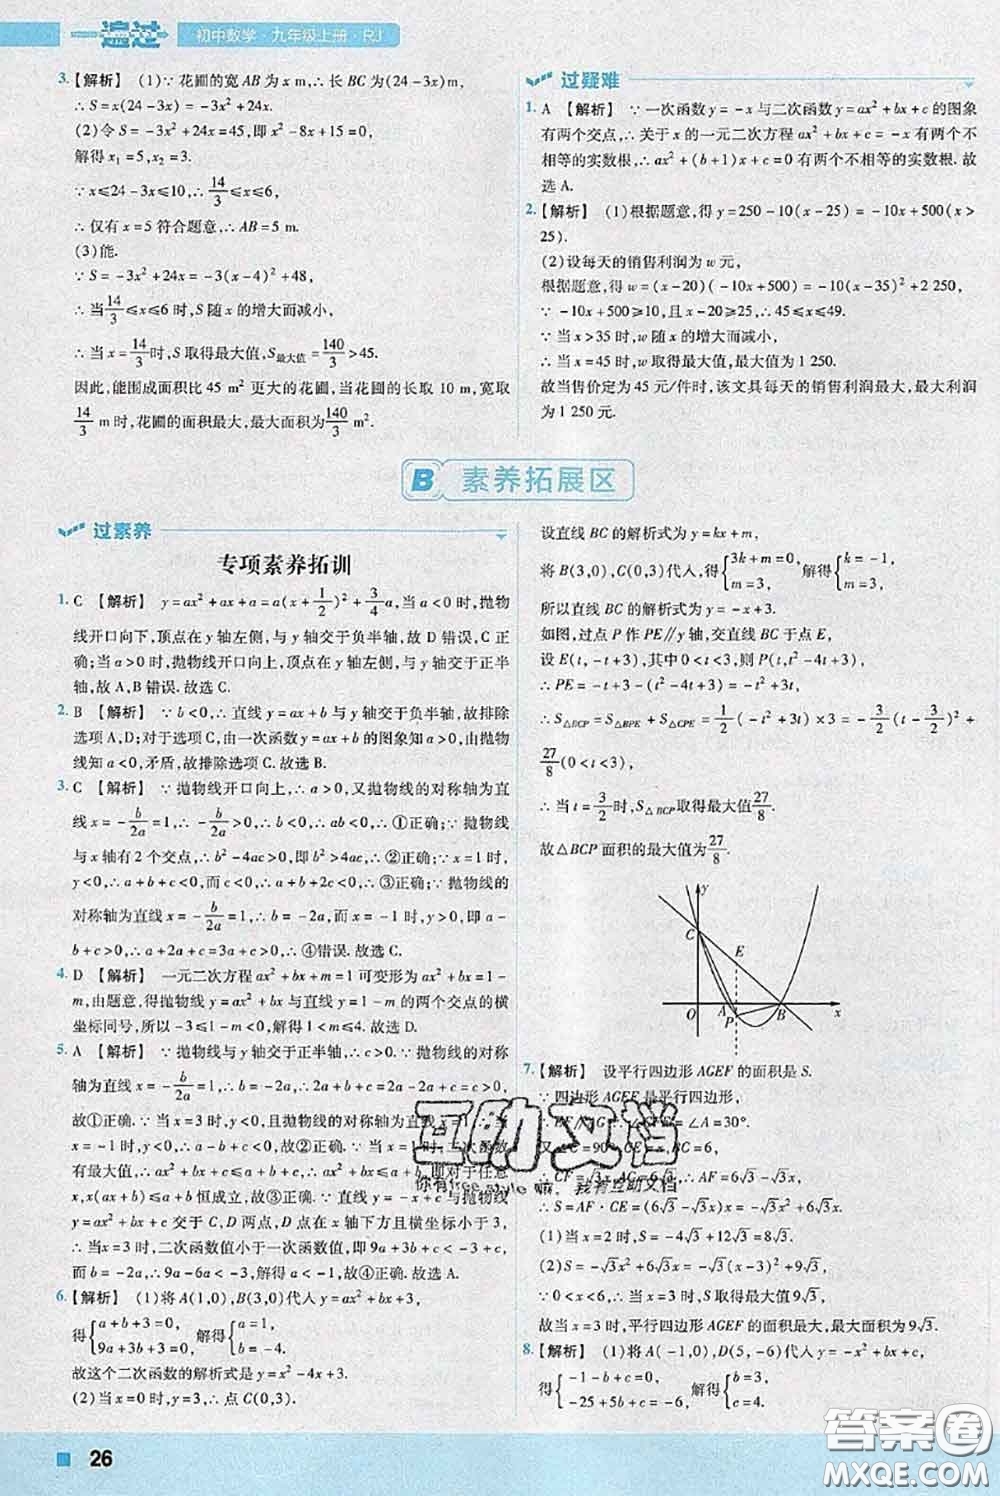 一遍过 初中数学·九年级上册·RJ
3.【解析】 (1)∵花圃的宽AB为x m,∴长BC为(24-3x)m,
∴S=x(24-3x)=-3x²+24x.
(2)令S=-3x²+24x=45,即x²-8x+15=0,
解得x₁=5,x₂=3.
∵x≤24-3x≤10,∴14/3≤x≤6,
∴仅有x=5符合题意,∴AB=5 m.
(3)能.
∵S=-3x²+24x=-3(x-4)²+48,
∴当14/3≤x≤6时,S随x的增大而减小,
∴当x=14/3时,S取得最大值,S最大值=140/3>45.
因此,能围成面积比45 m²更大的花圃,当花圃的长取10 m,宽取
14/3 m时,花圃的面积最大,最大面积为140/3 m².
过疑难
1. A 【解析】 ∵一次函数y=-x与二次函数y=ax²+bx+c的图象
有两个交点,∴关于x的一元二次方程ax²+bx+c=-x有两个不
相等的实数根,∴ax²+(b+1)x+c=0有两个不相等的实数根.故
选A.
2.【解析】 (1)根据题意,得y=250-10(x-25)=-10x+500(x>
25).
(2)设每天的销售利润为w元,
根据题意,得w=(x-20)(-10x+500)=-10(x-35)²+2 250,
∵-10x+500≥10,且x-20≥25,∴45≤x≤49.
∵当x>35时,w随x的增大而减小,
∴当x=45时,w取得最大值,最大值为1 250.
故当售价定为45元/件时,该文具每天的销售利润最大,最大利润
为1 250元.
B 素养拓展区
过素养
专项素养拓训
1. C 【解析】 y=ax²+ax+a=a(x+1/2)²+3/4a,当a<0时,抛物
线开口向下,顶点在y轴左侧,与y轴交于负半轴,故D错误,C正
确;当a>0时,抛物线开口向上,顶点在y轴左侧,与y轴交于正半
轴,故A,B错误.故选C.
2. B 【解析】 ∵b<0,∴直线y=ax+b与y轴交于负半轴,故排除
选项A,D;对于选项C,由一次函数y=ax+b的图象知a>0,由抛物
线知a<0,矛盾,故排除选项C.故选B.
3. C 【解析】 ∵抛物线开口向上,∴a>0,又抛物线的对称轴为直
线x=-b/2a=1,∴-b/2a>0,∴b<0,∴ab<0,∴①正确;∵抛物线
与x轴有2个交点,∴b²-4ac>0,即b²>4ac,∴②正确;∵x=1时,
y<0,∴a+b+c<0,∴a+c<-b,∴③正确;∵抛物线
的对称轴为直线x=-b/2a=1,∴b=-2a,而x=-1时,y>0,即a-
b+c>0,∴a+2a+c=3a+c>0,∴④错误.故选C.
4. D 【解析】 一元二次方程ax²+bx+m=1可变形为ax²+bx=1-
m,由题意,得抛物线y=ax²+bx与直线y=1-m的两个交点的横
坐标同号,所以-3≤1-m<0,解得1<m≤4.故选D.
5. A 【解析】 ∵抛物线与y轴交于正半轴,∴c>0,∵抛物线的对称
轴为直线x=-b/2a=1,∴b=-2a>0,∴abc<0,
故①正确;∵当x=3时,y<0,且抛物线的对称轴为直线x=1,∴当
x=-1时,y<0,∴a-b+c<0,故②正确;∵当x=1时,二次函数
有最大值,∴ax²+bx+c≤a+b+c,即对于任意
x,x(ax+b)≤a+b恒成立,故③正确;∵直线y=-x+c与抛物线
y=ax²+bx+c交于C,D两点,D点在x轴下方且横坐标小于3,
∴当x=3时,二次函数值小于一次函数值,即9a+3b+c<-3+c,
而b=-2a,∴9a-6a<-3,∴a<-1,故④正确.故选A.
6.【解析】 (1)将A(1,0),B(3,0)代入y=ax²+bx+3,
得{a+b+3=0, 9a+3b+3=0, 解得{a=1, b=-4.
故这个二次函数的解析式是y=x²-4x+3.
(2)当x=0时,y=3,∴点C(0,3).
设直线BC的解析式为y=kx+m,
将B(3,0),C(0,3)代入,得{3k+m=0, m=3, 解得{k=-1, m=3,
所以直线BC的解析式为y=-x+3.
如图,过点P作PE∥y轴,交直线BC于点E,
设E(t,-t+3),其中0<t<3,则P(t,t²-4t+3),
∴PE=-t+3-(t²-4t+3)=-t²+3t,
∴S△BCP=S△BPE+S△CPE=1/2(-t²+3t)×3=-3/2(t-3/2)²+
27/8(0<t<3),
∴当t=3/2时,S△BCP取得最大值27/8.
故△BCP面积的最大值为27/8.
y C E O A P B x
7.【解析】 设平行四边形AGEF的面积是S.
∵四边形AGEF是平行四边形,
∴EF∥AG,∴∠A=30°.
∴S=AF·CE=(6√3-√3x)x=-√3x²+6√3x.
(1)当x=2时,S=-4√3+12√3=8√3.
(2)S=-√3x²+6√3x=-√3(x-3)²+9√3,
∵0<x<6,∴当x=3时,S取得最大值9√3,
故当x=3时,平行四边形AGEF的面积最大,最大面积为9√3.
8.【解析】 (1)将A(-1,0),D(5,-6)代入y=-x²+bx+c,
得{-1-b+c=0, -25+5b+c=-6, 解得{b=3, c=4.
互助文档
26
答案圈
MXQE.COM